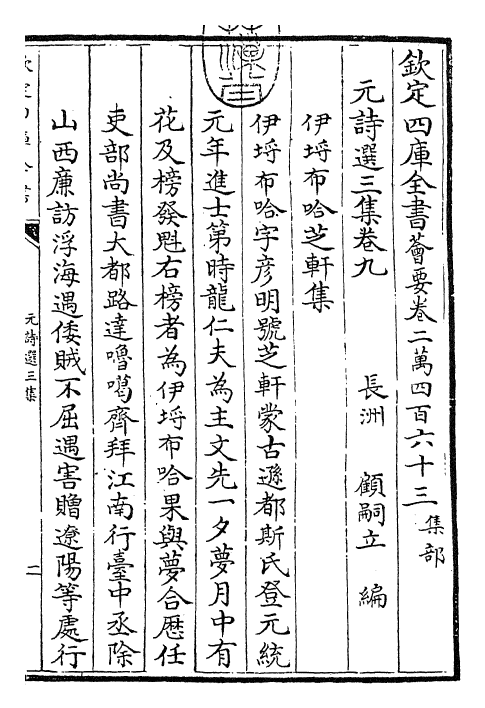 欽定四庫全書薈要卷二萬四百六十三 集部
元詩選三集卷九
長洲 顧嗣立 編
伊埒布哈芝軒集
伊埒布哈字彥明號芝軒蒙古遜都斯氏登元統
元年進士第時龍仁夫為主文先一夕夢月中有
花及榜發魁右榜者為伊埒布哈果與夢合歷任
吏部尚書大都路達嚕噶齊拜江南行臺中丞除
山西廉訪浮海遇倭賊不屈遇害贈遼陽等處行
元詩選三集